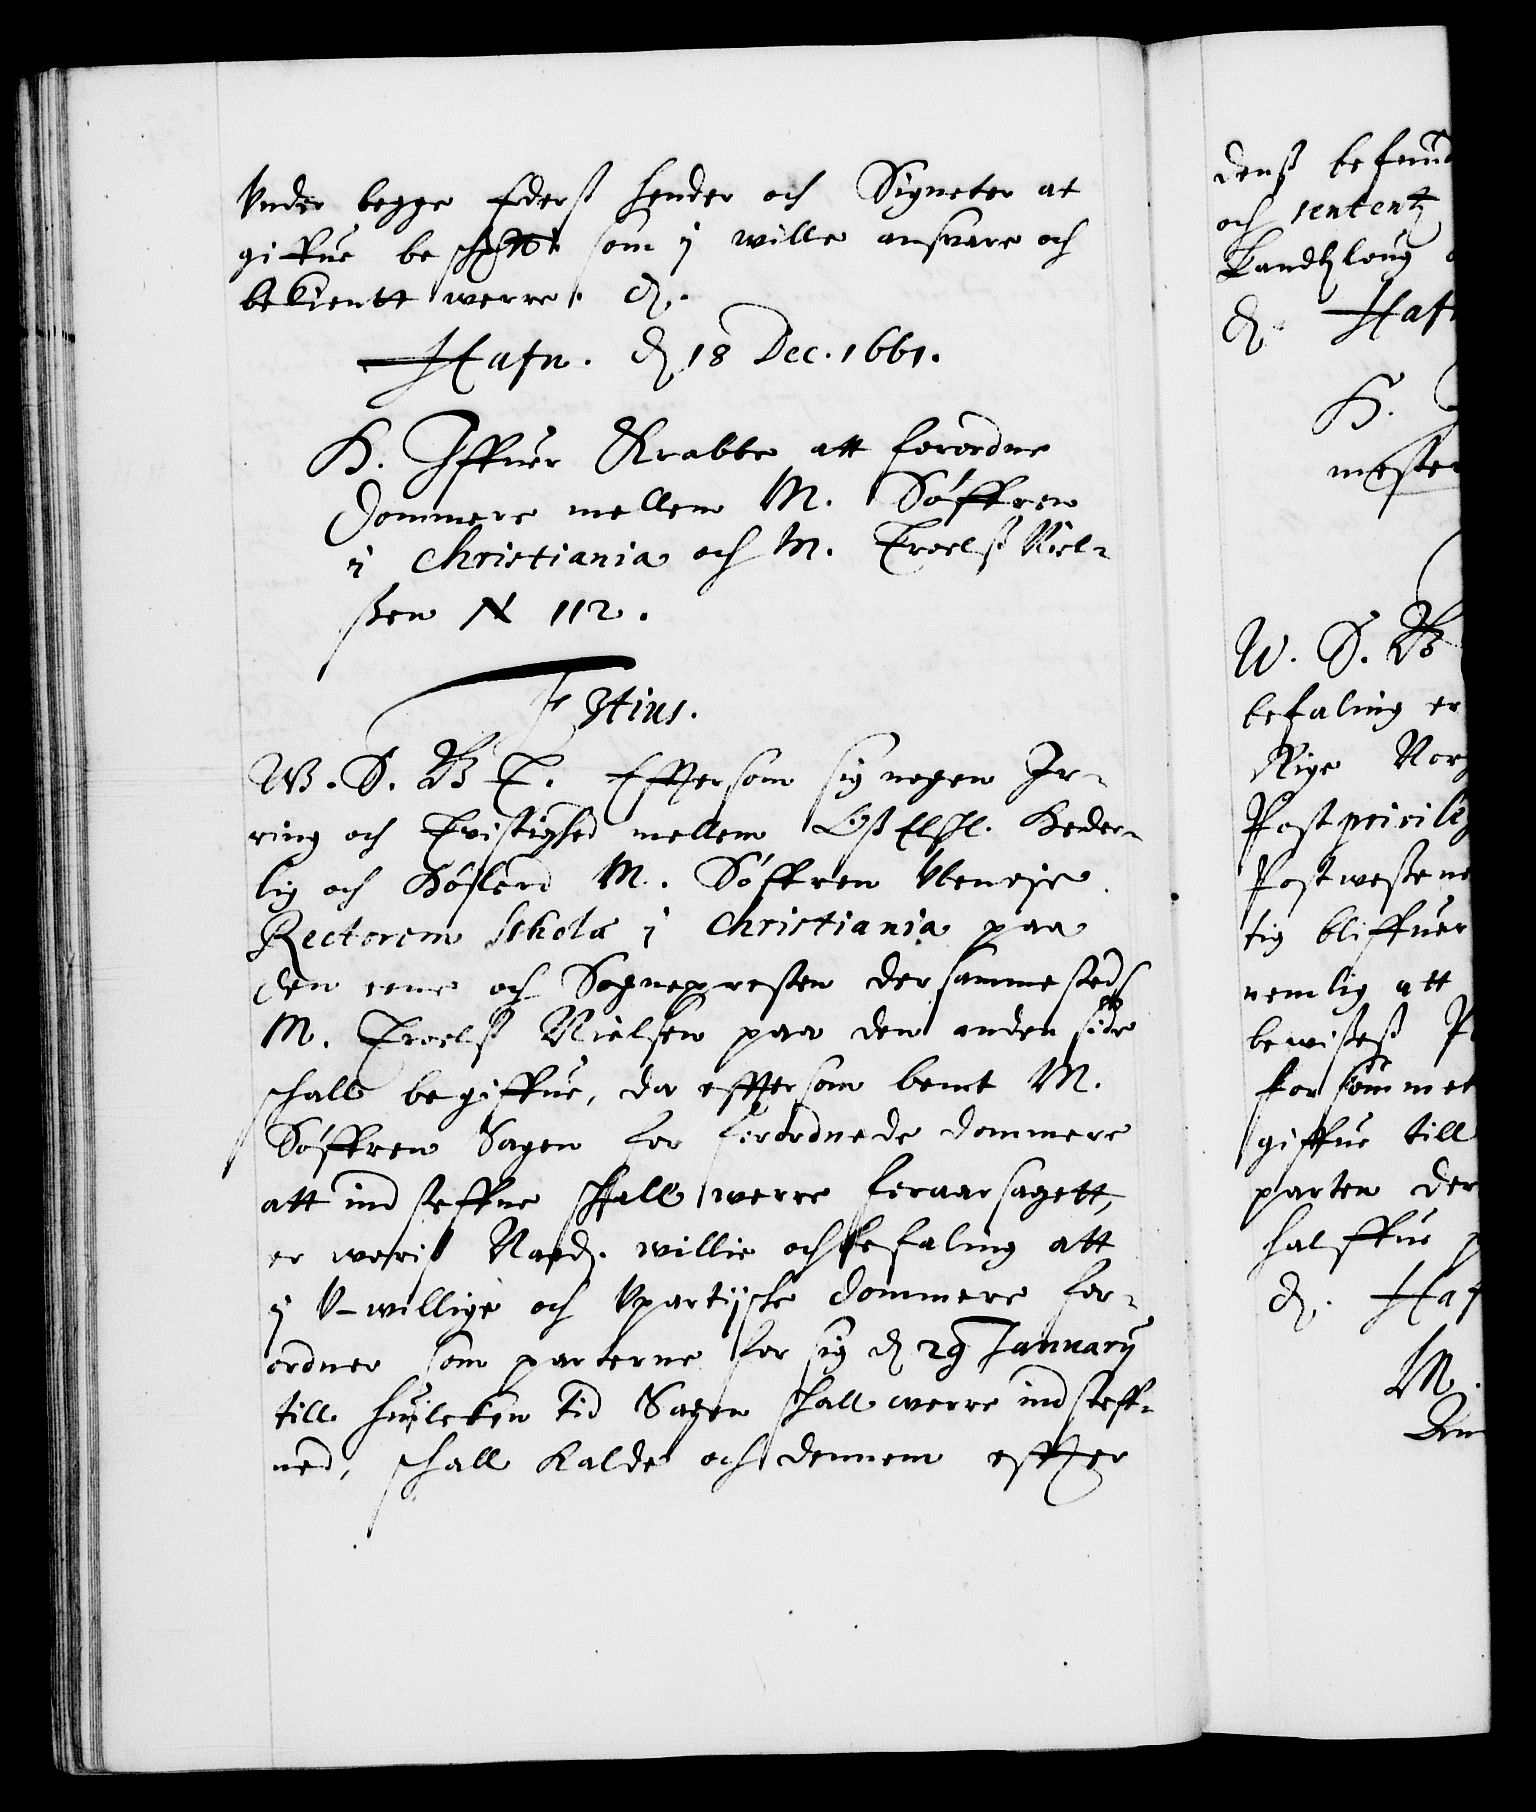 Vnder begge Ederß hender och Signeter at
giffue beschreffuit som i wille ansuare och
bekientt werre. etc.
Hafn. d. 18 Dec. 1661.
H. Iffuer Krabbe att forordne
Dommere mellem M. Söffren
i Christiania och M. Troelß Niel-
ßen N 112.
F 3tius.
W. S. G. T. Efftersom sig nogen Ir-
ring och Tvistighed mellem Oß Elskl. Heder-
lig och Höjlerd M. Söffren
Rectorem Scholæ i Christiania paa
den eene och Sognepresten dersammesteds
M. Troelß Nielsen paa den anden side
schall begiffue, da efftersom bemt M.
Söffren Sagen for forordnede dommere
att indsteffne schall werre foraarsagett,
er woriß Naad. willie och befaling att
i V-willige och Vpartijske dommere for-
ordner som parterne for sig d. 29 Januarij
till huilcken tid Sagen schall werre indsteff-
ned, schall kalde och dennem effter
denß befund
och sentent
Landzloug
etc. Haf
H.
mester
W. S. G
befaling er
Rige Nor
Postprivile
Postwesene
tig bliffuer
nemlig att
bewisesß P
forsömme
giffue till
parten der
halffue
etc. Haf
M.